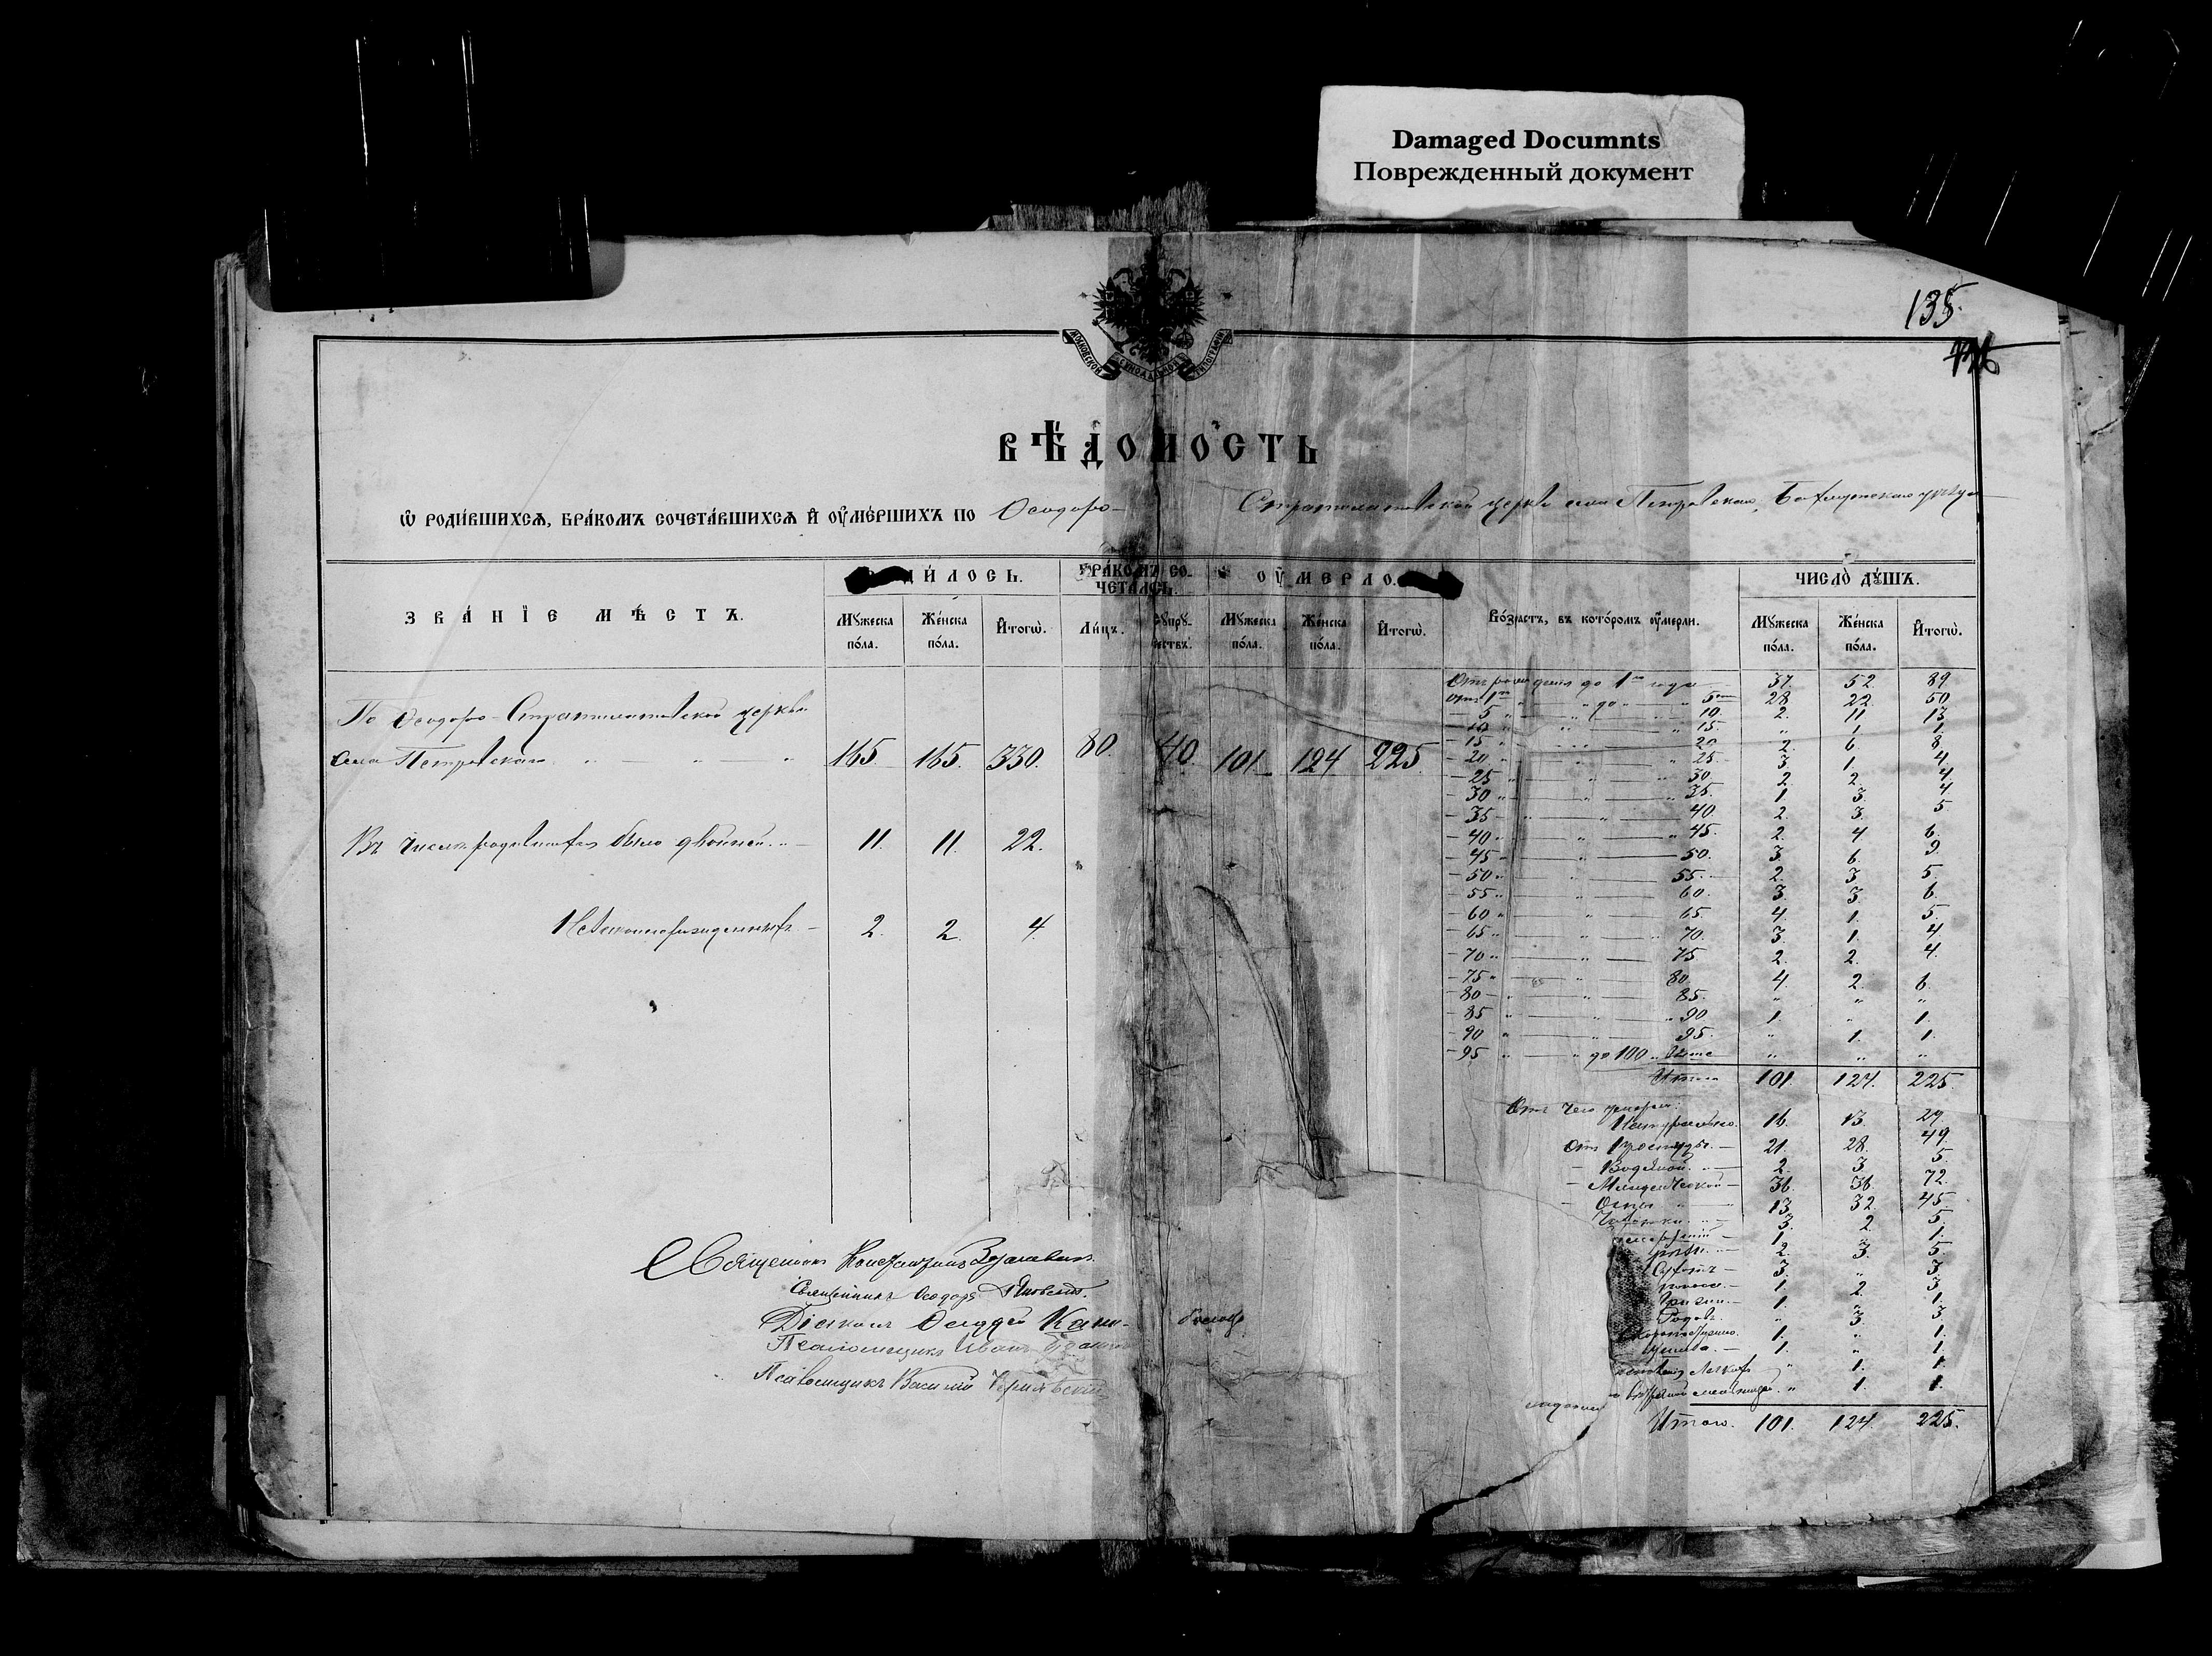 Damaged Documnts
Поврежденный документ
135.
МОСКОВСКОЙ СѴНОДАЛЬНОЙ ТИПОГРАФІИ
ВѢДОМОСТЬ
Ѡ РОДИВШИХСЯ, БРАКОМЪ СОЧЕТАВШИХСЯ И ОУМЕРШИХЪ ПО Ѳеодоро- Стратилатовской церкви села Петровскаго, Бахмутскаго уѣзда
ЗВАНІЕ МѢСТЪ.
ДИЛОСЬ.
БРАКОМЪ СОЧЕТАЛОСЬ.
ОУМЕРЛО.
Возрастъ, въ которомъ оумерли.
ЧИСЛО ДУШЪ.
Мужеска пола. Женска пола. Итогѡ. Лицъ. Супружествъ. Мужеска пола. Женска пола. Итогѡ. Мужеска пола. Женска пола. Итогѡ.
По Ѳеодоро-Стратилатовской церкви
села Петровскаго 165. 165. 330. 80. 40 101 124 225.
Въ числѣ родившихся было двойней 11. 11. 22.
Незаконнорожденныхъ 2. 2. 4.
Отъ рожденія до 1го года 37. 52. 89
Отъ 1го до 5ти 28. 22. 50
5 10. 2. 11. 13.
10 15. " 1. 1.
15 20 2. 6. 8.
20 25. 3. 1. 4.
25 30. 2. 2. 4.
30 35. 1. 3. 4
35 40. 2. 3. 5.
40 45. 2. 4 6.
45 50. 3. 6. 9.
50 55. 2. 3 5.
55 60. 3. 3. 6.
60 65 4. 1. 5.
65 70. 3. 1. 4.
70 75 2. 2. 4.
75 80 4. 2. 6.
80 85. " " "
85 90 1. " 1.
90 95. " 1. 1.
95 до 100 " " "
Итого 101. 124. 225.
Отъ чего умерли:
Натурально. 16. 13. 29
Отъ простуды. 21. 28. 49.
Водяной. 2. 3. 5.
Младенческой 36. 36. 72.
Оспы 13. 32. 45.
Чахотки 3. 2. 5.
1. " 1.
2. 3. 5.
3. " 3.
1. 2. 3.
1. " 1.
Родовъ. " 3. 3
Скоропостижно. 1. " 1.
1. " 1.
" 1. 1.
" 1. 1.
Итого. 101. 124. 225.
Священникъ Константинъ
Священникъ Ѳеодоръ
Діаконъ
Псаломщикъ Иванъ
Псаломщикъ Василій